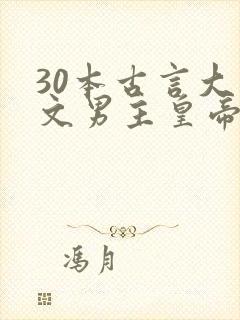 30本古言大
文男主皇帝
冯月